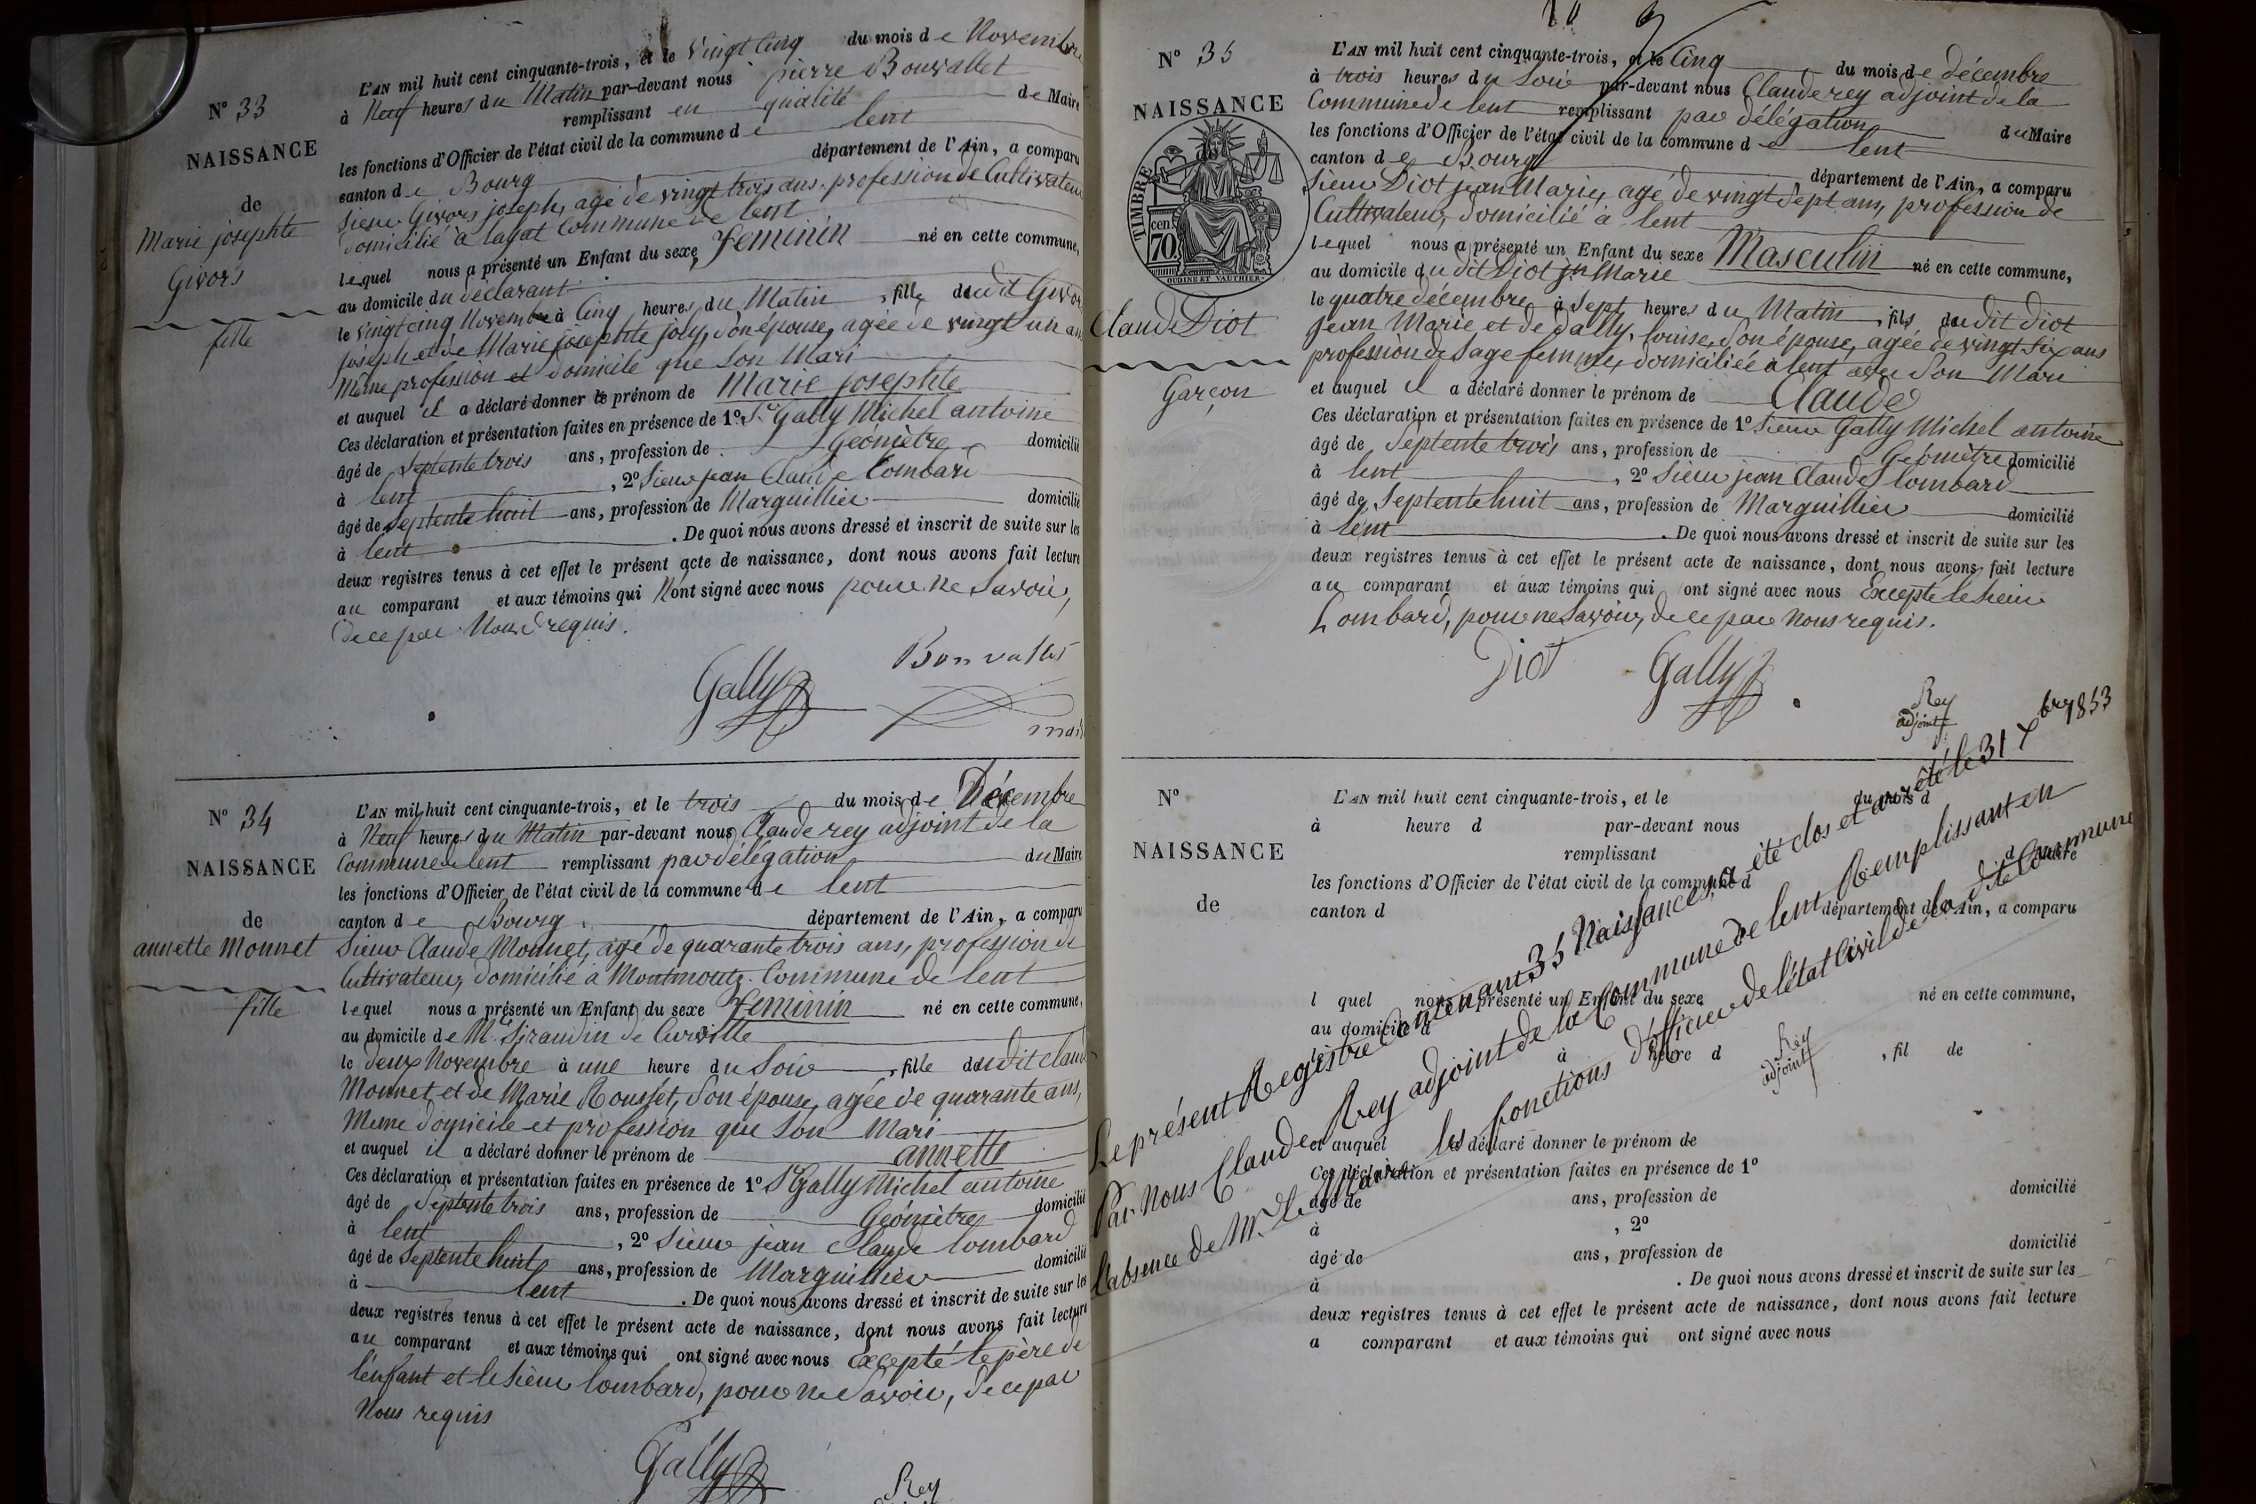 N° 33
NAISSANCE
de
Marie josephte
Givors
fille
L'AN mil huit cent cinquante-trois, et le Vingt Cinq du mois de Novembre
à Neuf heures du Matin par-devant nous pierre Bonvallet
remplissant en qualité de Maire
les fonctions d'Officier de l'état civil de la commune de lent
canton de Bourg département de l'Ain, a comparu
Sieur Givors joseph, agé de vingt trois ans, profession de Cultivateur
domicilié à lagat Commune de lent
lequel nous a présenté un Enfant du sexe Feminin né en cette commune,
au domicile du déclarant
le vingt cinq Novembre à Cinq heures du Matin, fille dudit Givors
joseph et de Marie josephte joly, son épouse, agée de vingt un ans
Même profession et domicile que son Mari
et auquel il a déclaré donner le prénom de Marie josephte
Ces déclaration et présentation faites en présence de 1° Sr Gally Michel antoine
âgé de Septente trois ans, profession de Géomètre domicilié
à lent, 2° Sieur jean Claude Lombard
âgé de Septente huit ans, profession de Marguillier domicilié
à lent. De quoi nous avons dressé et inscrit de suite sur les
deux registres tenus à cet effet le présent acte de naissance, dont nous avons fait lecture
au comparant et aux témoins qui Nont signé avec nous pour ne Savoir,
de ce par Nous requis.
Gally
Bonvallet
N° 34
NAISSANCE
de
annette Monnet
fille
L'AN mil huit cent cinquante-trois, et le trois du mois de Décembre
à Neuf heures du Matin par-devant nous Claude rey adjoint de la
Commune de lent remplissant par délégation du Maire
les fonctions d'Officier de l'état civil de la commune de lent
canton de Bourg département de l'Ain, a comparu
Sieur Claude Monnet, agé de quarante trois ans, profession de
Cultivateur, domicilié à Commune de lent
lequel nous a présenté un Enfant du sexe Feminin né en cette commune,
au domicile de Mr Siraudin de
le deux Novembre à une heure du Soir, fille dudit claude
Monnet et de Marie Rousset, Son épouse, agée de quarante ans,
Meme domicile et profession que Son Mari
et auquel il a déclaré donner le prénom de annette
Ces déclaration et présentation faites en présence de 1° Sr Gally Michel antoine
âgé de Septente trois ans, profession de Géomètre domicilié
à lent, 2° Sieur jean Claude lombard
âgé de Septente huit ans, profession de Marguillier domicilié
à lent. De quoi nous avons dressé et inscrit de suite sur les
deux registres tenus à cet effet le présent acte de naissance, dont nous avons fait lecture
au comparant et aux témoins qui ont signé avec nous Excepté le père de
l'enfant et le Sieur lombard, pour ne Savoir, de ce par
Nous requis
Gally
Rey
N° 35
NAISSANCE
TIMBRE
cen. 70
OUDINE ET VAUTHIER
Claude Diot
Garçon
L'AN mil huit cent cinquante-trois, et le Cinq du mois de décembre
à trois heures du Soir par-devant nous Claude rey adjoint de la
Commune de lent remplissant par délégation du Maire
les fonctions d'Officier de l'état civil de la commune de lent
canton de Bourg département de l'Ain, a comparu
Sieur Diot jean Marie, agé de vingt Sept ans, profession de
Cultivateur, domicilié à lent
lequel nous a présenté un Enfant du sexe Masculin né en cette commune,
au domicile dudit Diot jn Marie
le quatre décembre à Sept heures du Matin, fils dudit diot
jean Marie et de Louise, Son épouse, agée de vingt Six ans
profession de Sage femme, domiciliée a lent avec Son Mari
et auquel il a déclaré donner le prénom de Claude
Ces déclaration et présentation faites en présence de 1° Sieur Gally Michel antoine
âgé de Septente trois ans, profession de Géomètre domicilié
à lent, 2° Sieur jean Claude lombard
âgé de Septente huit ans, profession de Marguillier domicilié
à lent. De quoi nous avons dressé et inscrit de suite sur les
deux registres tenus à cet effet le présent acte de naissance, dont nous avons fait lecture
au comparant et aux témoins qui ont signé avec nous Excepté le Sieur
Lombard, pour ne Savoir, de ce par Nous requis.
Diot
Gally
Rey
adjoint
N°
NAISSANCE
de
L'AN mil huit cent cinquante-trois, et le du mois d
à heure d par-devant nous
remplissant d Maire
les fonctions d'Officier de l'état civil de la commune d
canton d département de l'Ain, a comparu
l quel nous a présenté un Enfant du sexe né en cette commune,
au domicile d
le à heure d, fil de
et auquel a déclaré donner le prénom de
Ces déclaration et présentation faites en présence de 1°
âgé de ans, profession de domicilié
à, 2°
âgé de ans, profession de domicilié
à. De quoi nous avons dressé et inscrit de suite sur les
deux registres tenus à cet effet le présent acte de naissance, dont nous avons fait lecture
a comparant et aux témoins qui ont signé avec nous
Le présent Registre Contenant 35 Naissances, a été clos et arrêté le 31 Xbre 1853
Par Nous Claude Rey adjoint de la Commune de lent Remplissant en
l'absence de Mr le Maire les fonctions d'officier de l'état Civil de la dite Commune
Rey
adjoint